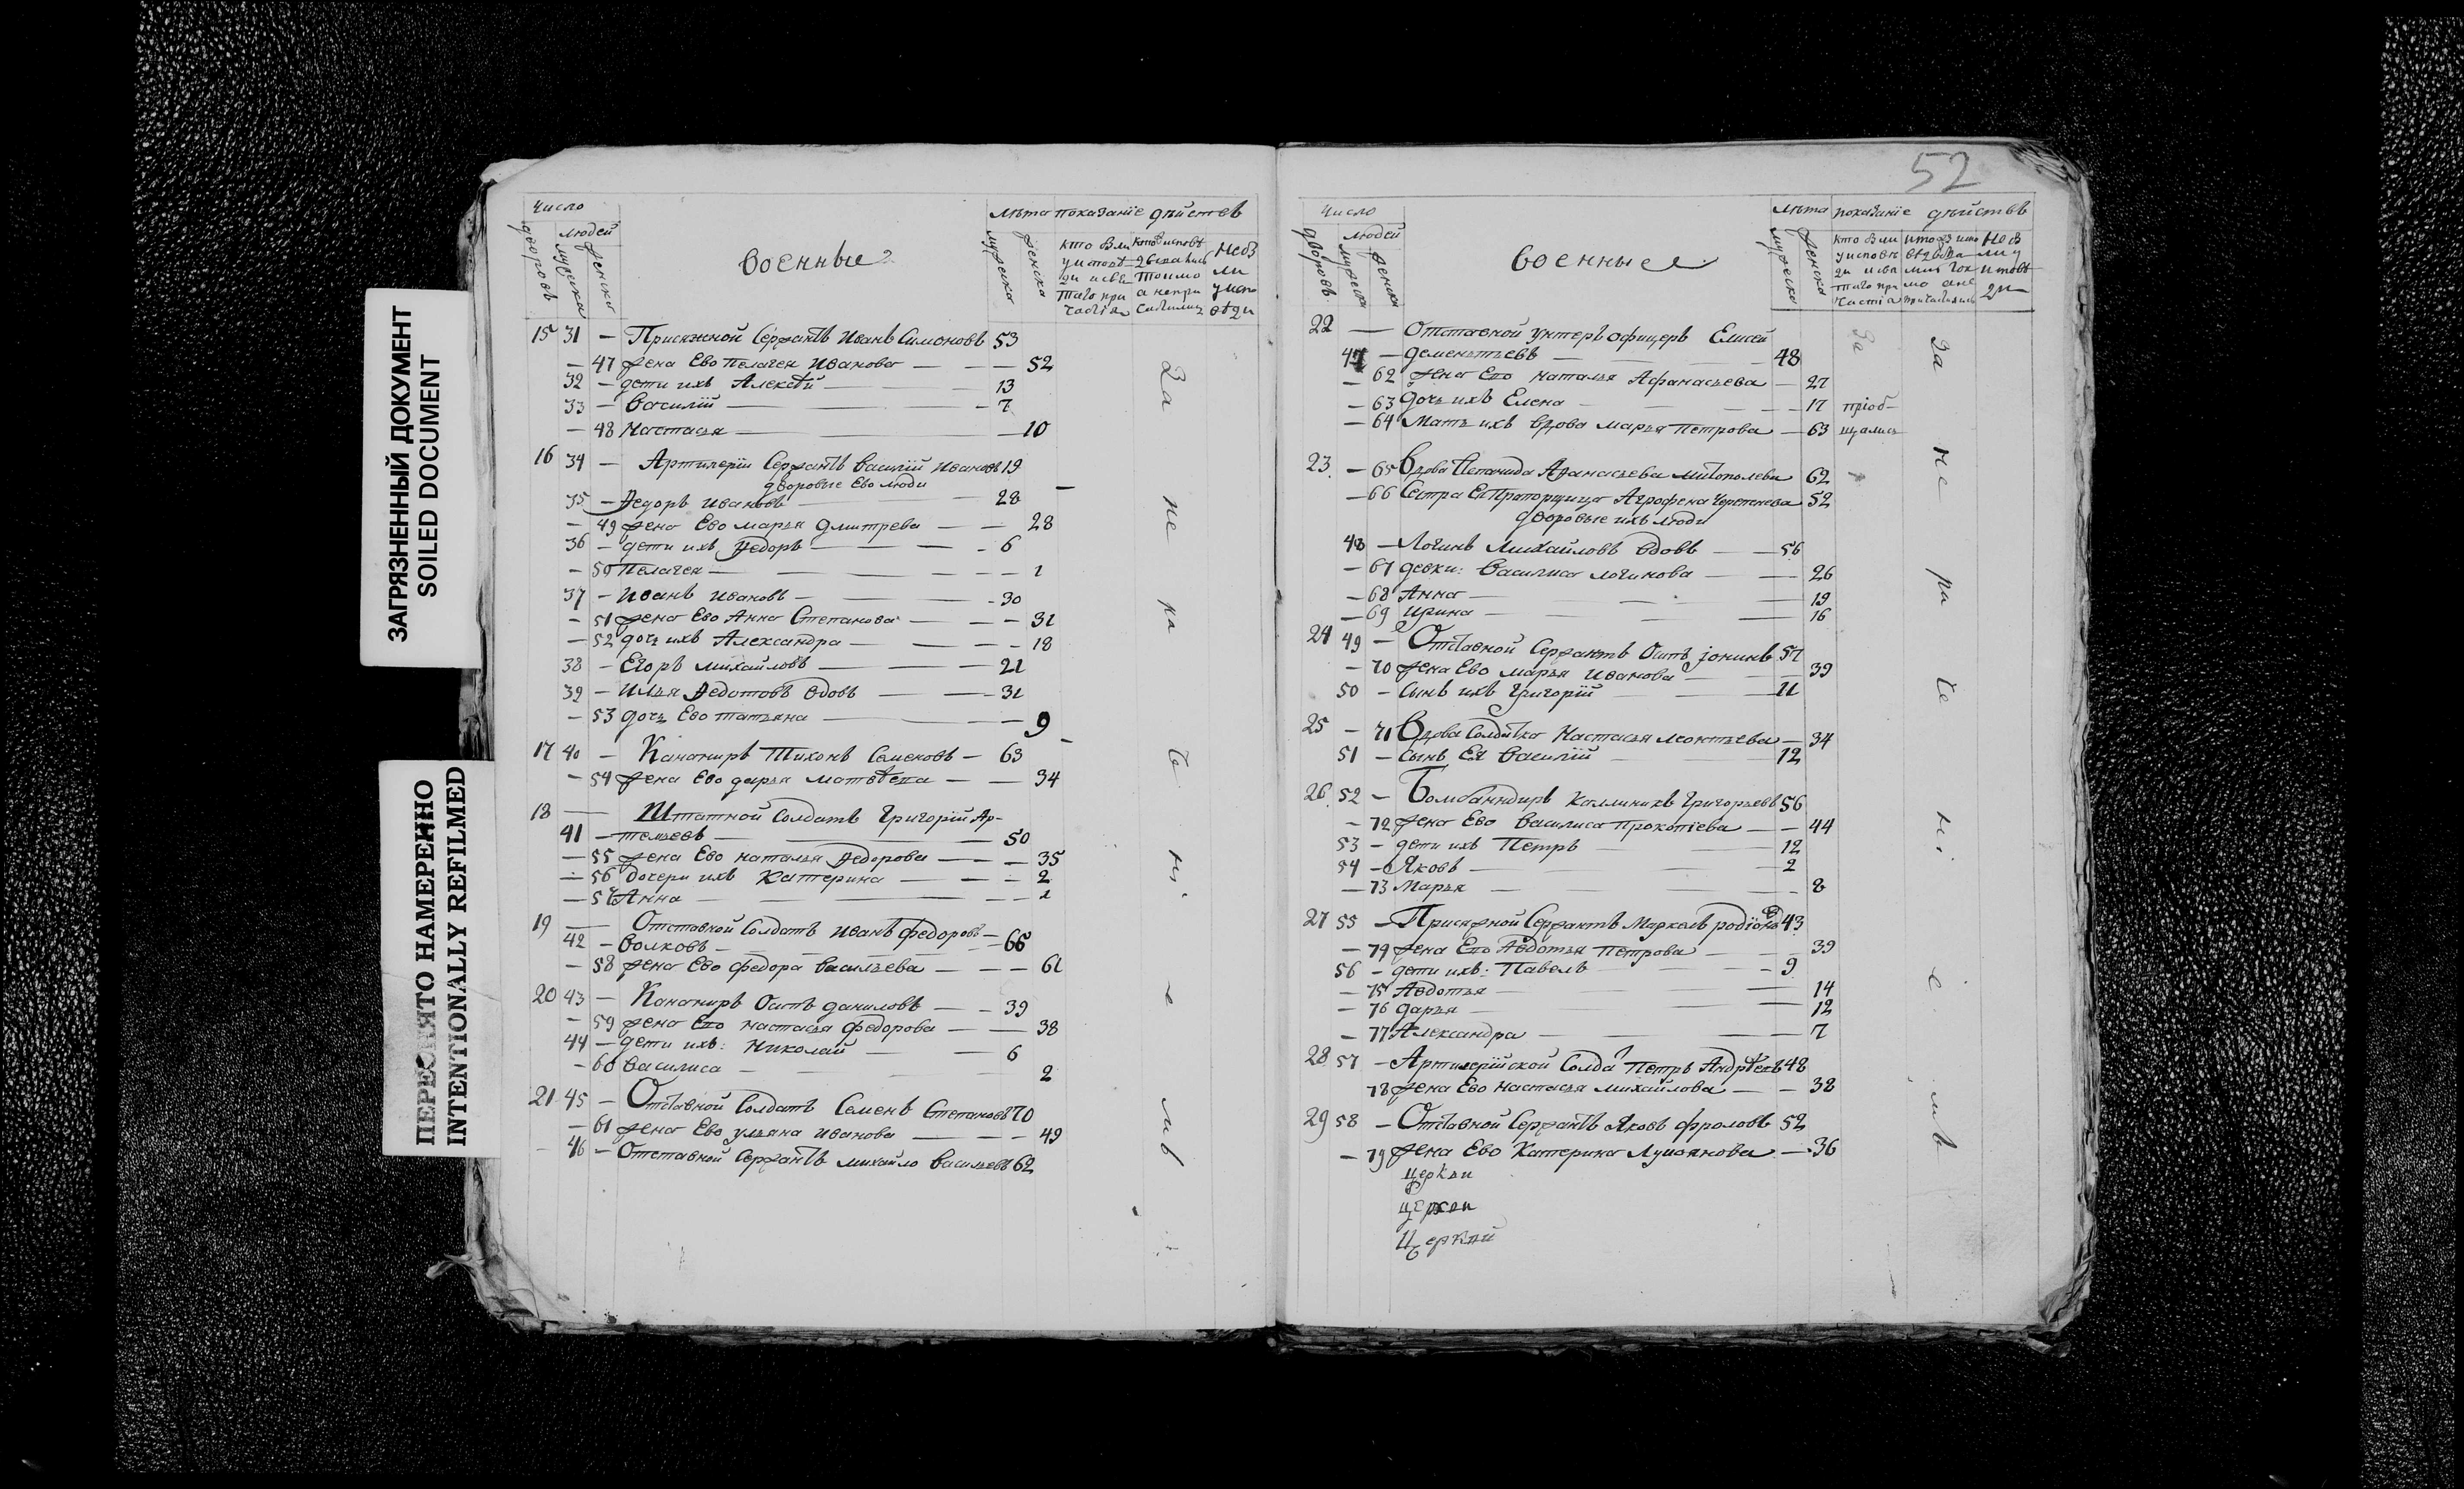 ЗАГРЯЗНЕННЫЙ ДОКУМЕНТ
SOILED DOCUMENT
ПЕРЕСНЯТО НАМЕРЕННО
INTENTIONALLY REFILMED
Число
дворовъ
людей
мужска
женска
военные
лѣта
мужска
женска
показанїе дѣйствъ
15 31 — Присяжной Сержантъ Иванъ Симоновъ 53
— 47 жена Ево Пелагея Иванова — — 52
32 — дети ихъ Алексѣй — 13
33 — Василїй — 7
— 48 Настасья — 10
16 34 — Артилерїи Сержантъ Василїй Ивановъ 19
дворовые Ево люди
35 — Федоръ Ивановъ — 28
— 49 жена Ево марья дмитрева — — 28
36 — дети ихъ Федоръ — 6
— 50 Пелагея — 1
37 — Иванъ Ивановъ — 30
— 51 жена Ево Анна Степанова — — 31
— 52 дочь ихъ Александра — 18
38 — Егоръ михайловъ — 21
39 — Илья Федотовъ вдовъ — 31
— 53 дочь Ево татьяна — 9
17 40 — Канониръ Тихонъ Семеновъ — 63
— 54 жена Ево дарья матвѣева — 34
18 — Штатной Солдатъ Григорїй Ар-
41 — темьевъ — 50
— 55 жена Ево наталья Федорова — — 35
— 56 дочери ихъ Катерина — 2
— 57 Анна — 1
19 — Отставной Солдатъ Иванъ федоровъ —
42 — Волковъ — 66
— 58 жена Ево федора Васильева — — 61
20 43 — Канониръ Осипъ даниловъ — 39
— 59 жена Ево настасья федорова — 38
44 — дети ихъ: Николай — 6
— 60 Василиса — 2
21 45 — Отставной Солдатъ Семенъ Степановъ 70
— 61 жена Ево ульяна Иванова — 49
— 46 — Отставной Сержантъ михайло Васильевъ 62
За не ра че нї е мъ
52
Число
дворовъ
людей
мужска
женска
военные
лѣта
мужска
женска
показанїе дѣйствъ
22 — Отставной унтеръ офицеръ Елисей
47 — дементьевъ — 48
— 62 жена Ево наталья Афанасьева — 27
— 63 дочь ихъ Елена — 17
— 64 Мать ихъ вдова марья Петрова — 63
прїоб-
щались
23 — 65 Вдова Степанида Афанасьева 62
— 66 Сестра Ея Прапорщица Агрофена 52
дворовые ихъ люди
48 — Логинъ Михайловъ вдовъ — 56
— 67 девки: Василиса логинова — 26
— 68 Анна — 19
— 69 Ирина — 16
24 49 — Отставной Сержантъ Осипъ 57
— 70 жена Ево марья Иванова — 39
50 — Сынъ ихъ Григорїй — 11
25 — 71 Вдова Солдатка Настасья леонтьева — 34
51 — сынъ Ея Василїй — 12
26 52 — Бомбандиръ Каллиникъ Григорьевъ 56
— 72 жена Ево Василиса Прокопїева — 44
53 — дети ихъ Петръ — 12
54 — Яковъ — 2
— 73 Марья — 8
27 55 — Присяжной Сержантъ Маркелъ родїоновъ 43
— 74 жена Ево Авдотья Петрова — 39
56 — дети ихъ: Павелъ — 9
— 75 Авдотья — 14
— 76 дарья — 12
— 77 Александра — 7
28 57 — Артилерїйской Солда Петръ Андрѣевъ 48
78 жена Ево настасья михайлова — 38
29 58 — Отставной Сержантъ Яковъ фроловъ 52
— 79 жена Ево Катерина Лукоянова — 36
Церкви
Церкви
За не ра че нї е мъ